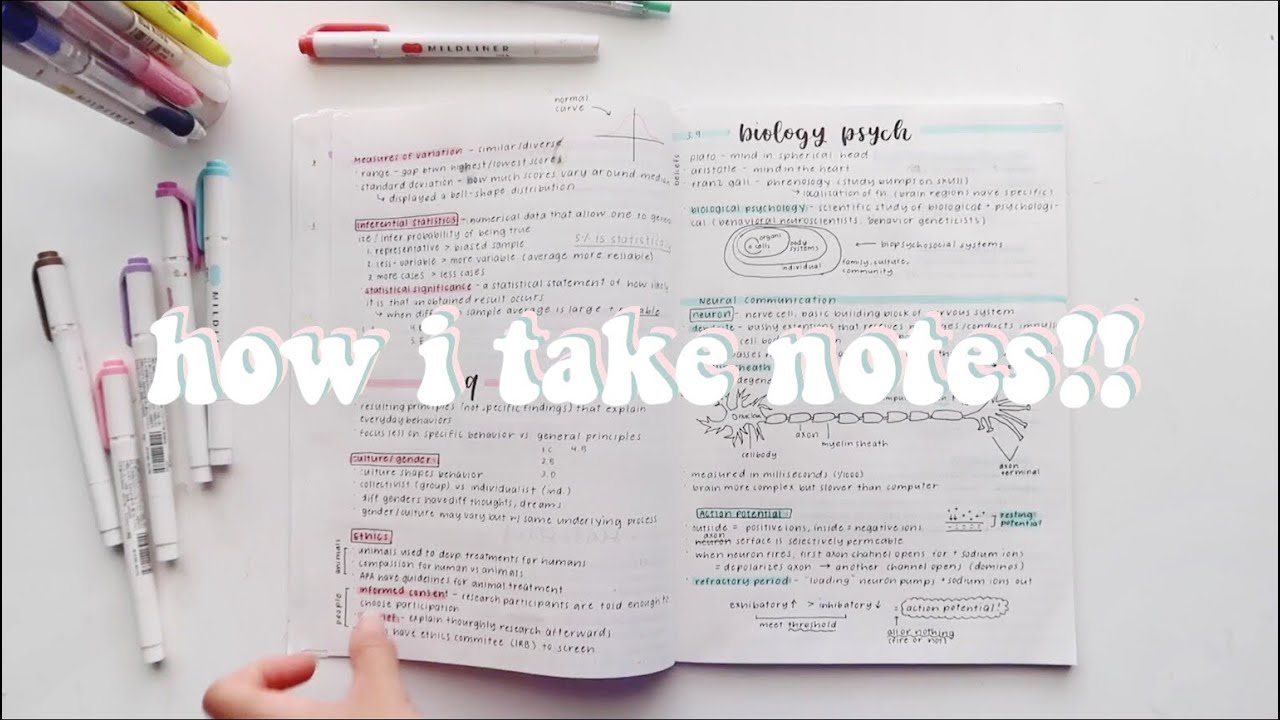 how i take notes!!
MILDLINER
MILDLINER
normal
curve
Measures of variation - similar/diverse
· range - gap btwn highest/lowest scores
· standard deviation - how much scores vary around
↳ displayed a bell-shape distribution
inferential statistics - numerical data that allow one to
infer probability of being true
5% is
1. representative > biased sample
2. less-variable > more variable (average more reliable)
3. more cases > less cases
statistical significance - a statistical statement of how
it is that an obtained result occurs
→ when sample average is large +
9
resulting principles (not specific findings) that explain
everyday behaviors
· focus less on specific behavior vs general principles
1.5 4.5
2.5
3.0
culture/gender:
· culture shapes behavior
· collectivist (group) vs individualist (ind.)
· diff genders have diff thoughts, dreams
· gender/culture may vary but w/ same underlying process
Ethics
animals
· animals used to devp treatments for humans
· compassion for human vs animals
· APA have guidelines for animal treatment
people
· informed consent - research participants are told enough to
choose participation
- explain thourghly research afterwards
have ethics commitee (IRB) to screen
3.9
biology psych
beliefs
plato - mind in spherical head
aristotle - mind in the heart
franz gall - phrenology (study bumps on skull)
↳ localization of fn. (brain regions have specific)
biological psychology - scientific study of biological + psychologi-
cal (behavioral neuroscientists, behavior geneticists)
organs
cells
body
systems
individual
← biopsychosocial systems
family, culture,
community
Neural communication
neuron - nerve cell, basic building block of nervous system
- bushy extentions that receives
cell
sheath
nucleus
axon
myelin sheath
cell body
axon
terminal
measured in milliseconds (1/1000)
· brain more complex but slower than computer
Action potential:
· outside = positive ions, inside = negative ions
resting
potential
axon
· neuron surface is selectively permeable
· when neuron fires, first axon channel opens for + sodium ions
= depolarizs axon → another channel opens (dominos)
· refractory period - "loading" neuron pumps + sodium ions out
exhibatory ↑ > inhibatory ↓ = action potential!
meet threshold
all or nothing
(fire or not)